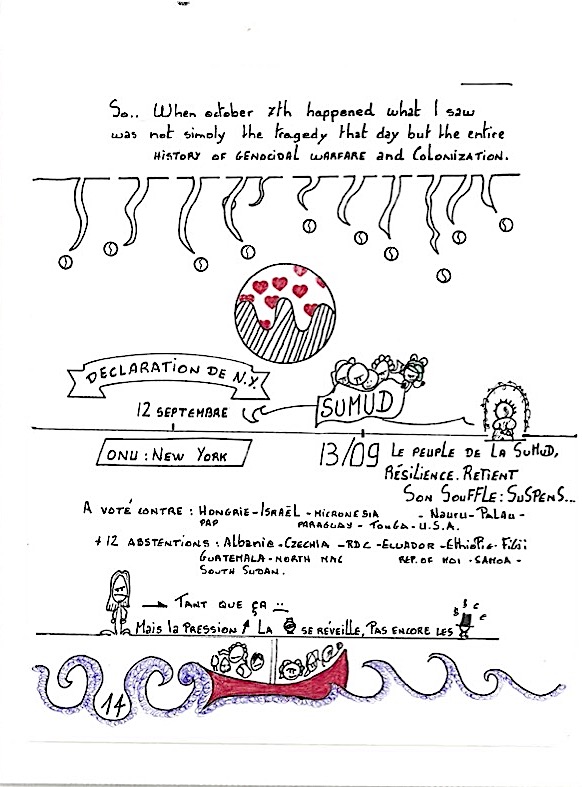 So.. When october 7th happened what I saw
was not simply the tragedy that day but the entire
HISTORY OF GENOCIDAL WARFARE and COLONIZATION.
DECLARATION DE N.Y.
12 SEPTEMBRE
SUMUD
ONU : NEW YORK
13/09 LE PEUPLE DE LA SUMUD,
RÉSILIENCE. RETIENT
SON SOUFFLE : SUSPENS...
A VOTÉ CONTRE : HONGRIE - ISRAËL - MICRONESIA - NAURU - PALAU -
PAP PARAGUAY - TONGA - U.S.A.
+ 12 ABSTENTIONS : Albanie - CZECHIA - RDC - ECUADOR - Ethiopie - Fiji
GUATEMALA - NORTH MAC REP. OF MOI - SAMOA -
SOUTH SUDAN.
TANT QUE ÇA
Mais la PRESSION LA SE RÉVEILLE, PAS ENCORE LES
$ $ € €
14